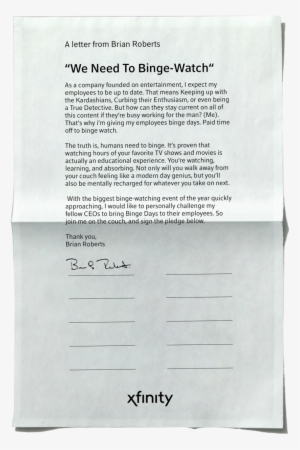 A letter from Brian Roberts
“We Need To Binge-Watch“
As a company founded on entertainment, I expect my
employees to be up to date. That means Keeping up with
the Kardashians, Curbing their Enthusiasm, or even being
a True Detective. But how can they stay current on all of
this content if they're busy working for the man? (Me).
That's why i'm giving my employees binge days. Paid time
off to binge watch.
The truth is, humans need to binge. It's proven that
watching hours of your favorite TV shows and movies is
actually an educational experience. You're watching,
learning, and absorbing. Not only will you walk away from
your couch feeling like a modern day genius, but you'll
also be mentally recharged for whatever you take on next.
With the biggest binge-watching event of the year quickly
approaching, I would like to personally challenge my
fellow CEOs to bring Binge Days to their employees. So
join me on the couch, and sign the pledge below.
Thank you,
Brian Roberts
xfinity